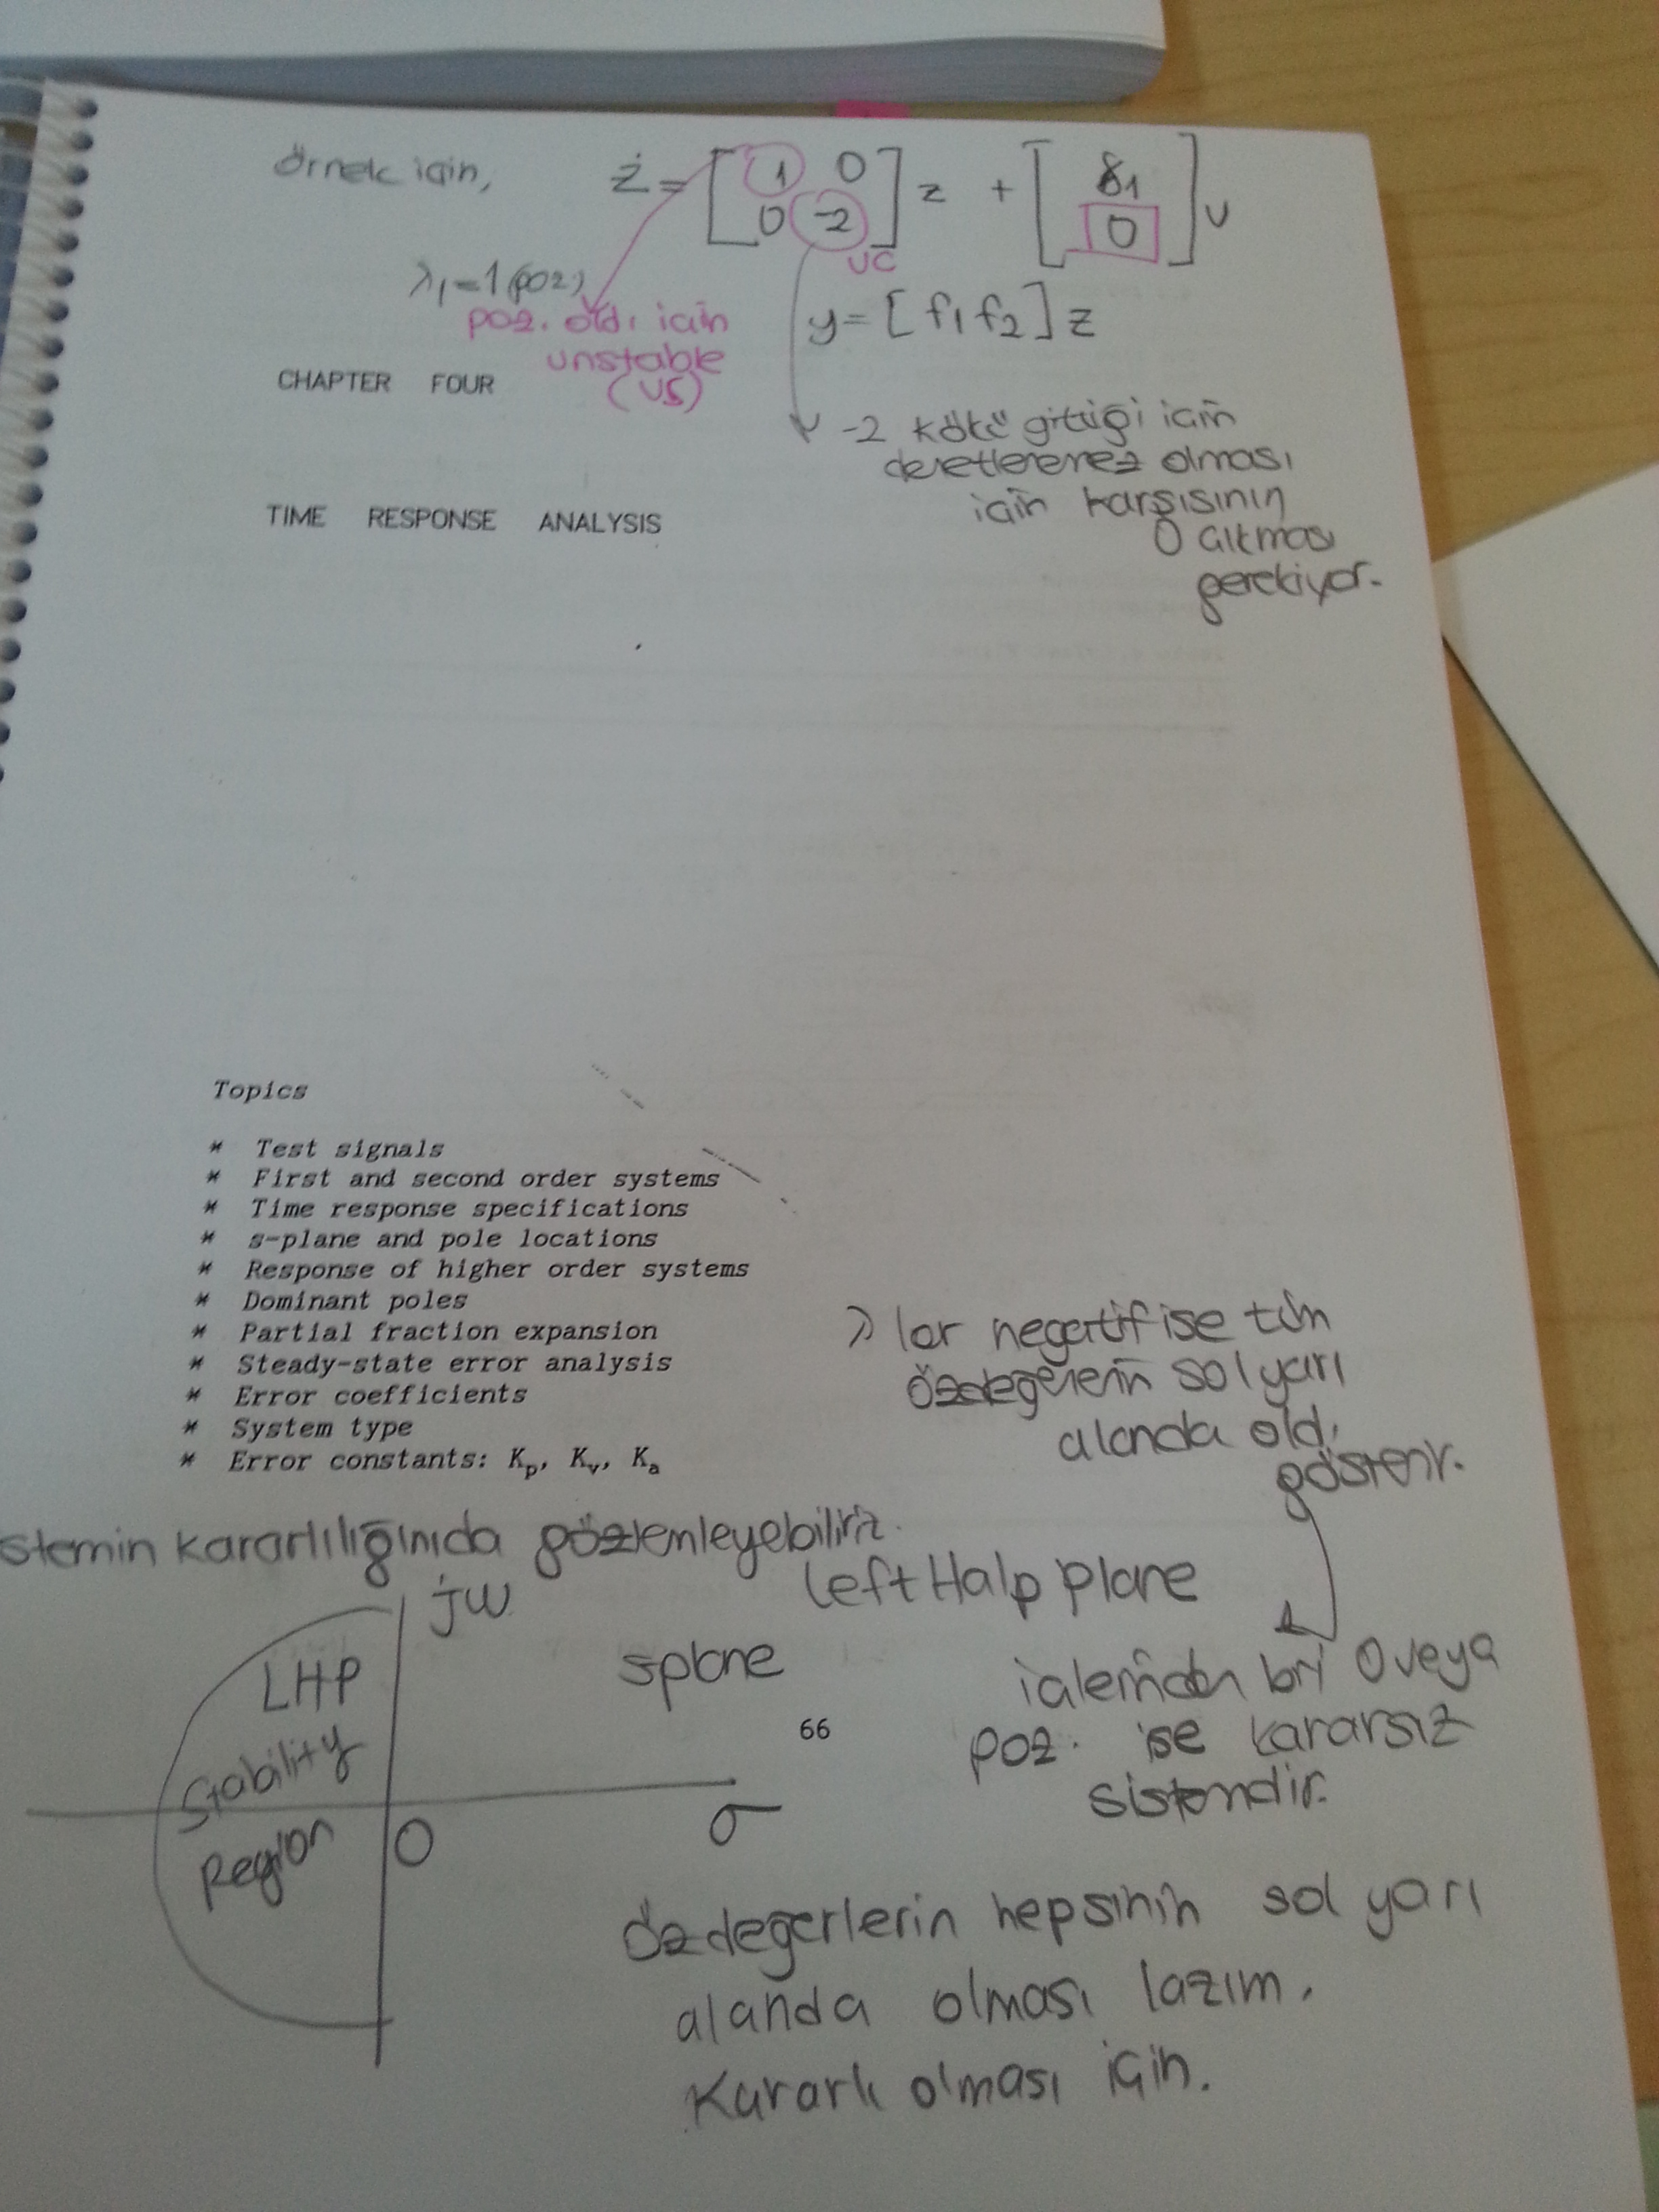 örnek için,
ż = [ 1 0 ] z + [ 81 ] u
0 -2 0
UC
λ1 = 1 (poz)
poz. old. için
unstable
(US)
y = [ f1 f2 ] z
CHAPTER FOUR
-2 kökü gittiği için
olması
için karşısının
0 çıkması
gerekiyor.
TIME RESPONSE ANALYSIS
Topics
* Test signals
* First and second order systems
* Time response specifications
* s-plane and pole locations
* Response of higher order systems
* Dominant poles
* Partial fraction expansion
* Steady-state error analysis
* Error coefficients
* System type
* Error constants: Kp, Kv, Ka
λ lar negatif ise tüm
özdeğerlerin sol yarı
alanda old.
gösterir.
stemin kararlılığınıda gözlemleyebiliriz.
Left Halp Plane
jw
LHP
Stability
Region
s plane
0
σ
içlerinden biri 0 veya
poz. ise kararsız
sistemdir.
66
Özdeğerlerin hepsinin sol yarı
alanda olması lazım.
Kararlı olması için.